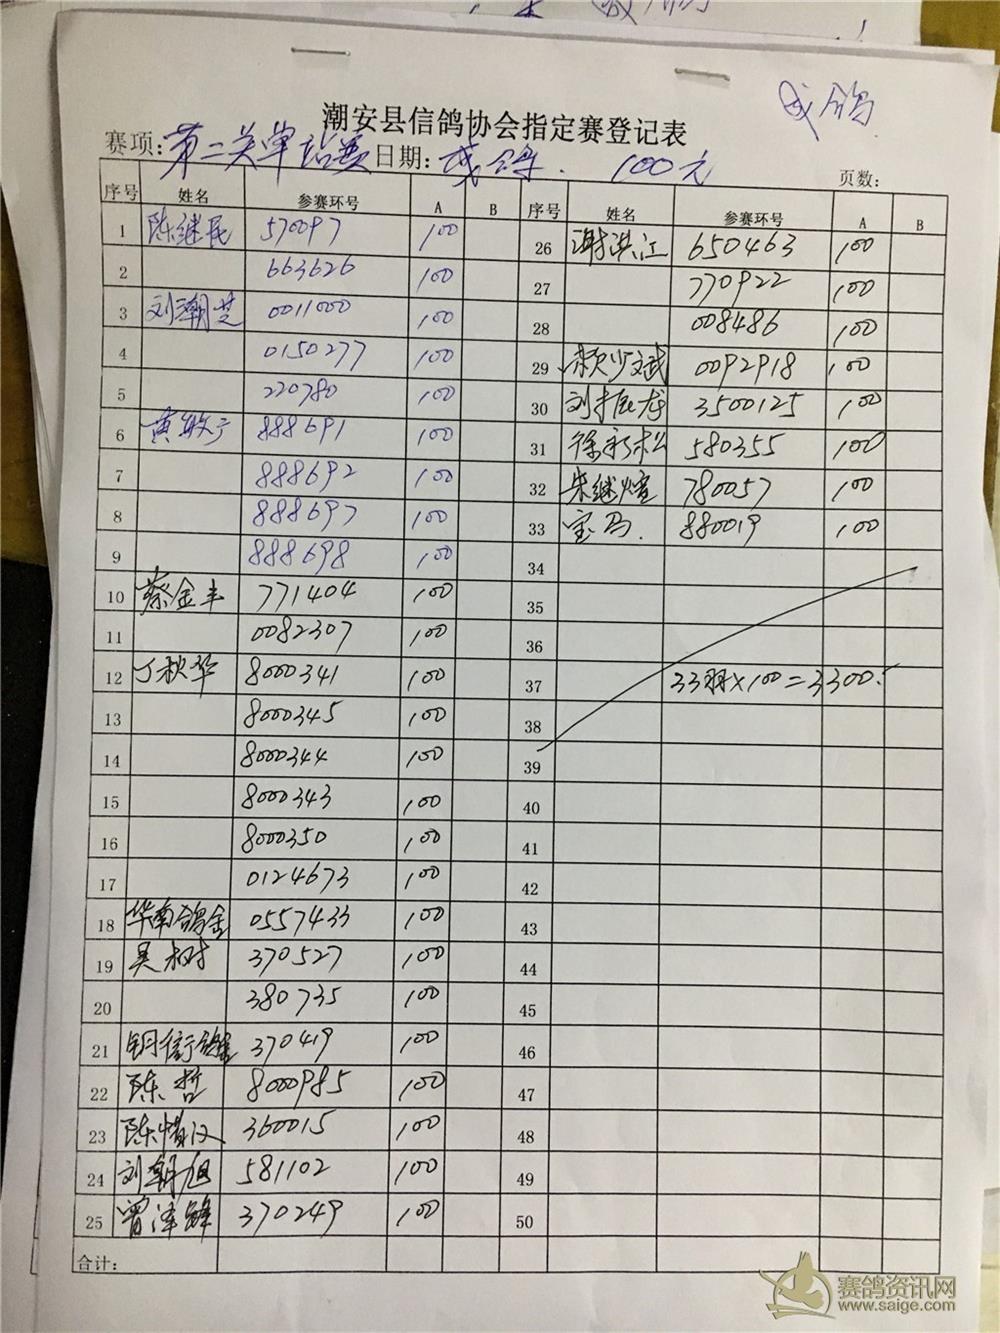 成鸽
潮安县信鸽协会指定赛登记表
赛项: 第二关单站赛 日期: 成鸽. 100元 页数:
序号 姓名 参赛环号 A B 序号 姓名 参赛环号 A B
1 陈继民 570097 100 26 谢洪江 650463 100
2 663626 100 27 770922 100
3 刘潮芝 0011000 100 28 008486 100
4 0150277 100 29 赖少斌 0092918 100
5 220780 100 30 刘振龙 3500125 100
6 黄敏 888691 100 31 徐 松 580355 100
7 888692 100 32 朱继煊 780057 100
8 888697 100 33 宝马. 880019 100
9 888698 100 34
10 蔡金丰 771404 100 35
11 0082307 100 36
12 丁秋华 8000341 100 37 33羽×100=3300.
13 8000345 100 38
14 8000344 100 39
15 8000343 100 40
16 8000350 100 41
17 0124673 100 42
18 华南鸽舍 0557433 100 43
19 吴树 370527 100 44
20 380735 100 45
21 铜街鸽舍 370419 100 46
22 陈哲 8000985 100 47
23 陈惜汉 360015 100 48
24 刘朝旭 581102 100 49
25 曾泽锋 370249 100 50
合计:
赛鸽资讯网
www.saige.com